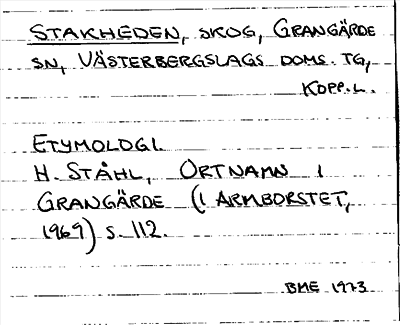 STAKHEDEN, SKOG, GRANGÄRDE
SN, VÄSTERBERGSLAGS DOMS. TG,
KOPP. L.
ETYMOLOGI.
H. STÅHL, ORTNAMN I
GRANGÄRDE (I ARMBORSTET,
1969) S. 112.
BME 1973